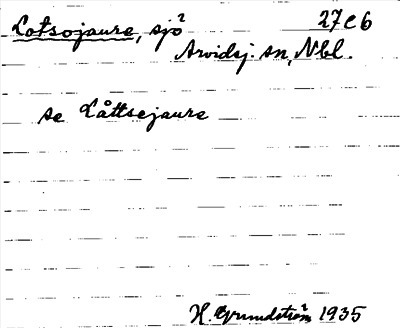 Lotsojaure, sjö 27 C 6
Arvidsj. sn, Nbl.
se Låttsejaure
H. Grundström 1935